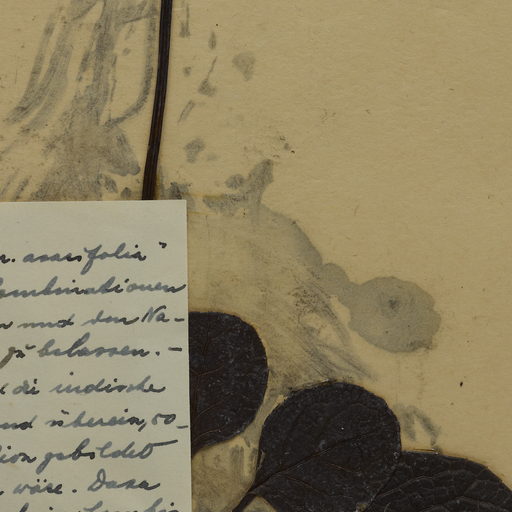 r. asarifolia"
Combinationen
n und den Na-
zu belassen. –
d die indische
und überein, so-
tion gebildet
n wäre. Dass